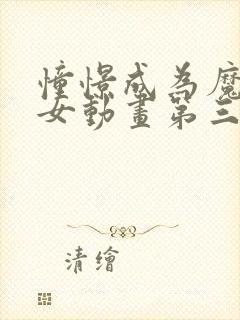 憧憬成為魔
女動畫第三
清繪